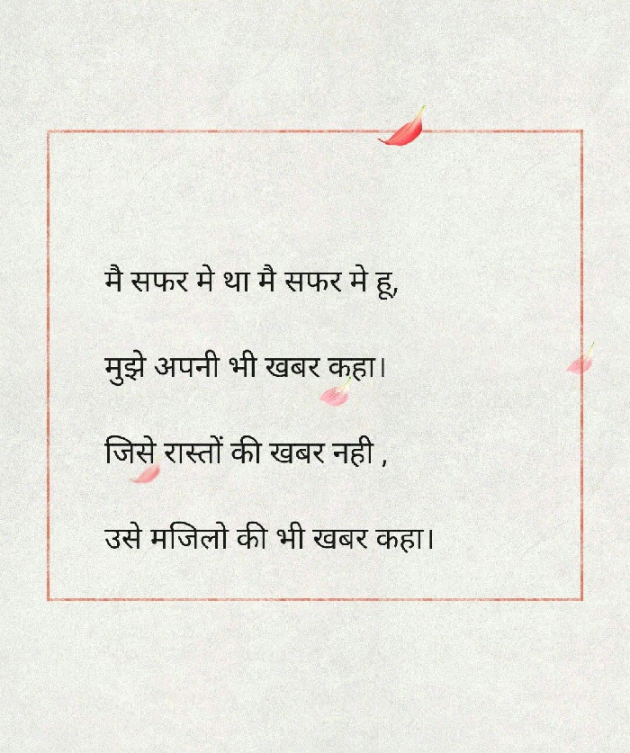 मै सफर मे था मै सफर मे हू,
मुझे अपनी भी खबर कहा।
जिसे रास्तों की खबर नही ,
उसे मजिलो की भी खबर कहा।